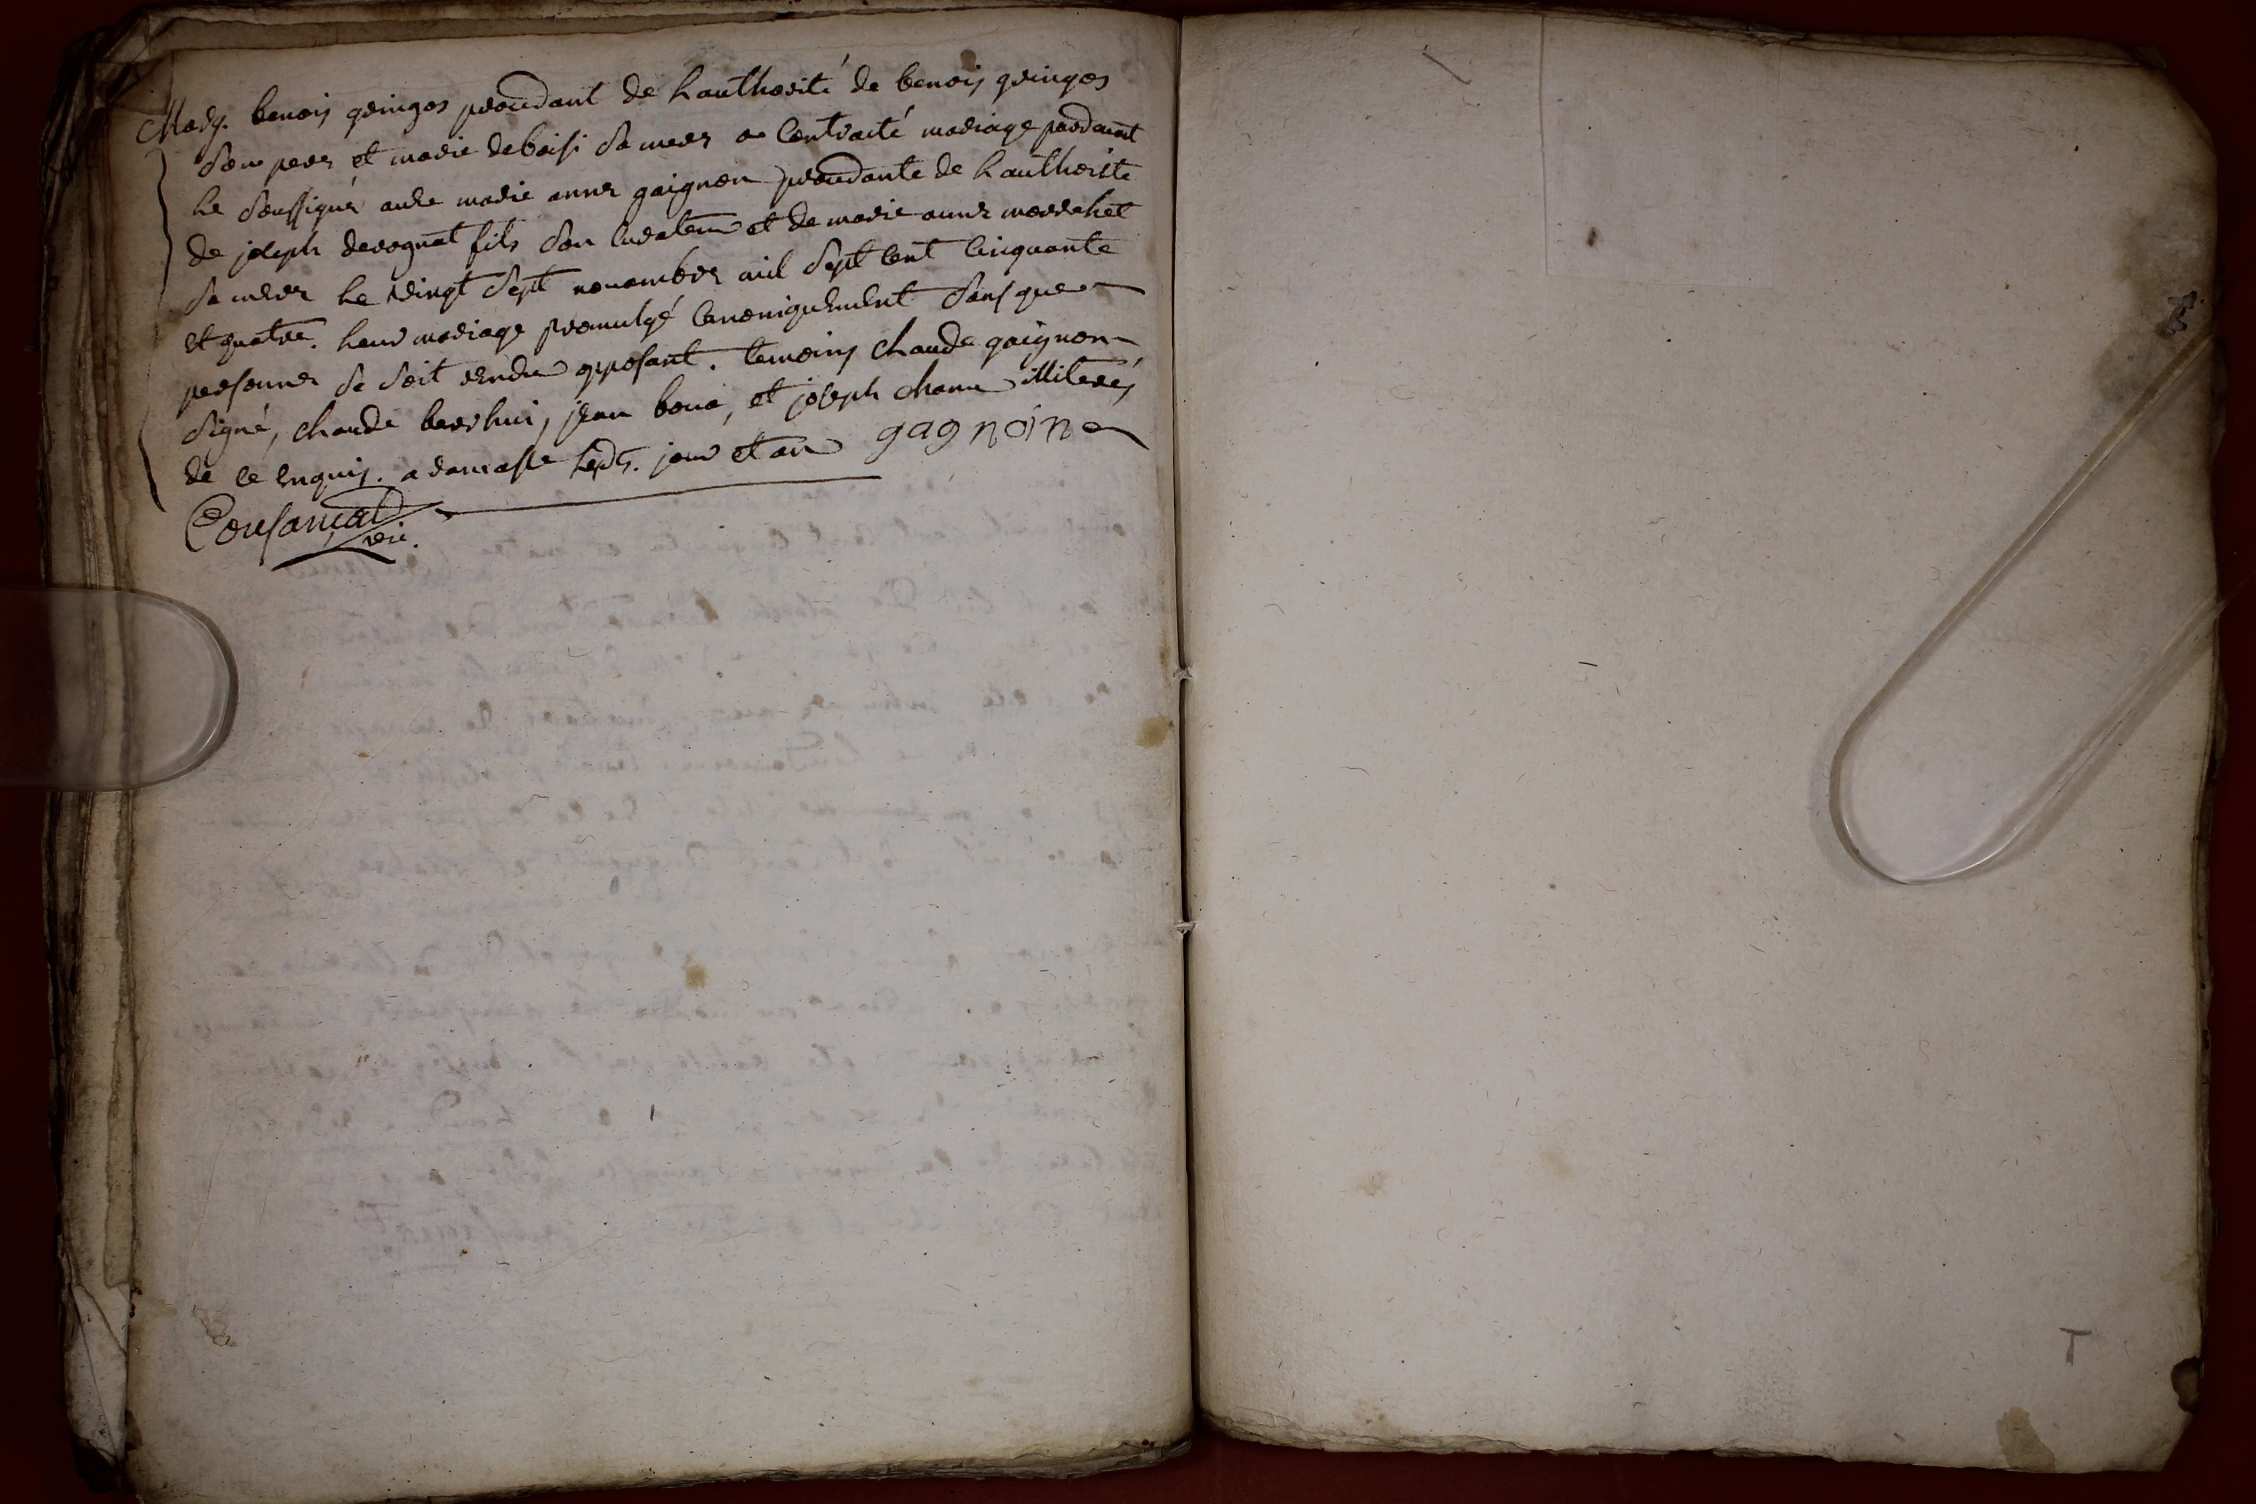 Marg. benois gringos procedant de l'authorité de benois gringos
son pere et marie deboisi sa mere a contracté mariage pardevant
le soussigné avec marie anne gaignon procedante de l'authorité
de joseph fils son curateur et de marie anne
sa mere le vingt sept novembre mil sept cent cinquante
et quatre. leur mariage promulgé canoniquement sans que
personne se soit rendu opposant. temoins claude gaignon
signé, claude berthui, jean bona, et joseph chanu illiterés
de ce enquis. a jour et an gagnoin
Cousançat
vic.
T